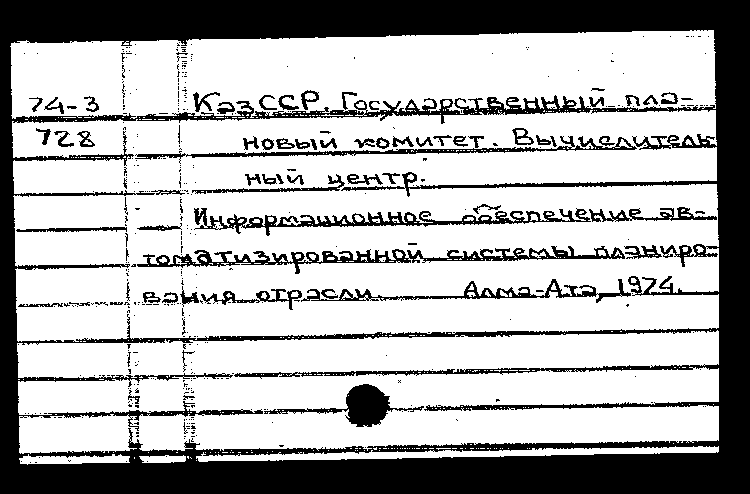 74-3 КазССР. Государственный пла-
728 новый комитет. Вычислитель-
ный центр.
Информационное обеспечение ав-
томатизированной системы планиро-
вания отрасли. Алма-Ата, 1974.